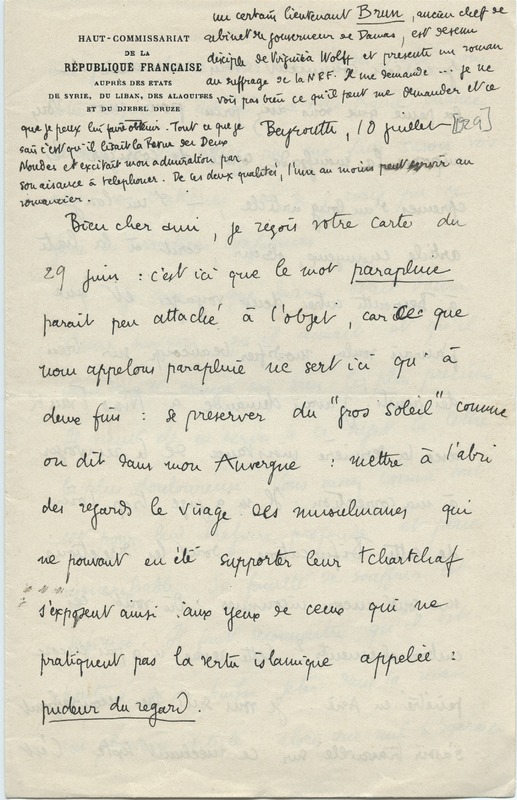 HAUT-COMMISSARIAT
DE LA
RÉPUBLIQUE FRANÇAISE
AUPRÈS DES ETATS
DE SYRIE, DU LIBAN, DES ALAOUITES
ET DU DJEBEL DRUZE
un certain lieutenant Brun, ancien chef de
cabinet du gouverneur de Damas, est devenu
disciple de Virginia Wolff et présente un roman
au suffrage de la NRF. Il me demande ... je ne
vois pas bien ce qu'il peut me demander et ce
que je peux lui faire obtenir. Tout ce que je
sais c'est qu'il lisait la Revue des Deux
Mondes et excitait mon admiration par
son aisance à téléphoner. De ces deux qualités, l'une au moins peut servir au
romancier.
Beyrouth, 10 juillet [29]
Bien cher ami, je reçois votre carte du
29 juin : c'est ici que le mot parapluie
parait peu attaché à l'objet, car ce que
nous appelons parapluie ne sert ici qu'à
deux fins : se préserver du "gros soleil" comme
on dit dans mon Auvergne : mettre à l'abri
des regards le visage des musulmanes qui
ne pouvant en été supporter leur tchartchaf
s'exposent ainsi aux yeux de ceux qui ne
pratiquent pas la vertu islamique appelée :
pudeur du regard.